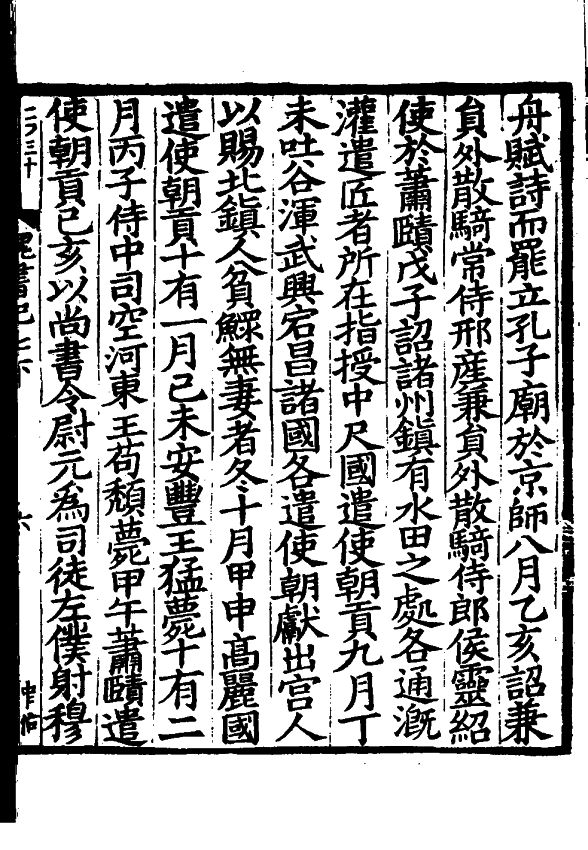 舟賦詩而罷立孔子廟於京師八月乙亥詔兼
貟外散騎常侍邢産兼貟外散騎侍郎侯靈紹
使於蕭賾戊子詔諸州鎮有水田之處各通漑
灌遣匠者所在指授中尺國遣使朝貢九月丁
未吐谷渾武興宕昌諸國各遣使朝獻出宫人
以賜北鎮人貧鰥無妻者冬十月甲申髙麗國
遣使朝貢十有一月己未安豐王猛薨十有二
月丙子侍中司空河東王苟頽薨甲午蕭賾遣
使朝貢己亥以尚書令尉元為司徒左僕射穆
六